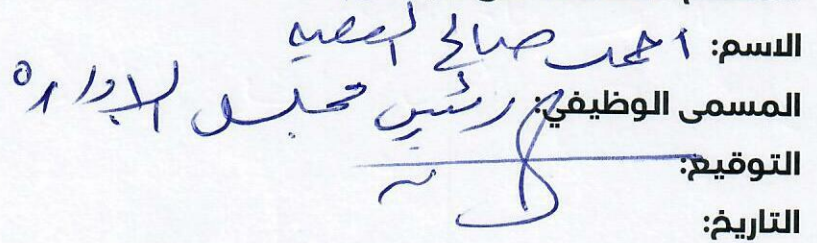 الاسم: احمد صالح
المسمى الوظيفي: رئيس مجلس الإدارة
التوقيع:
التاريخ: